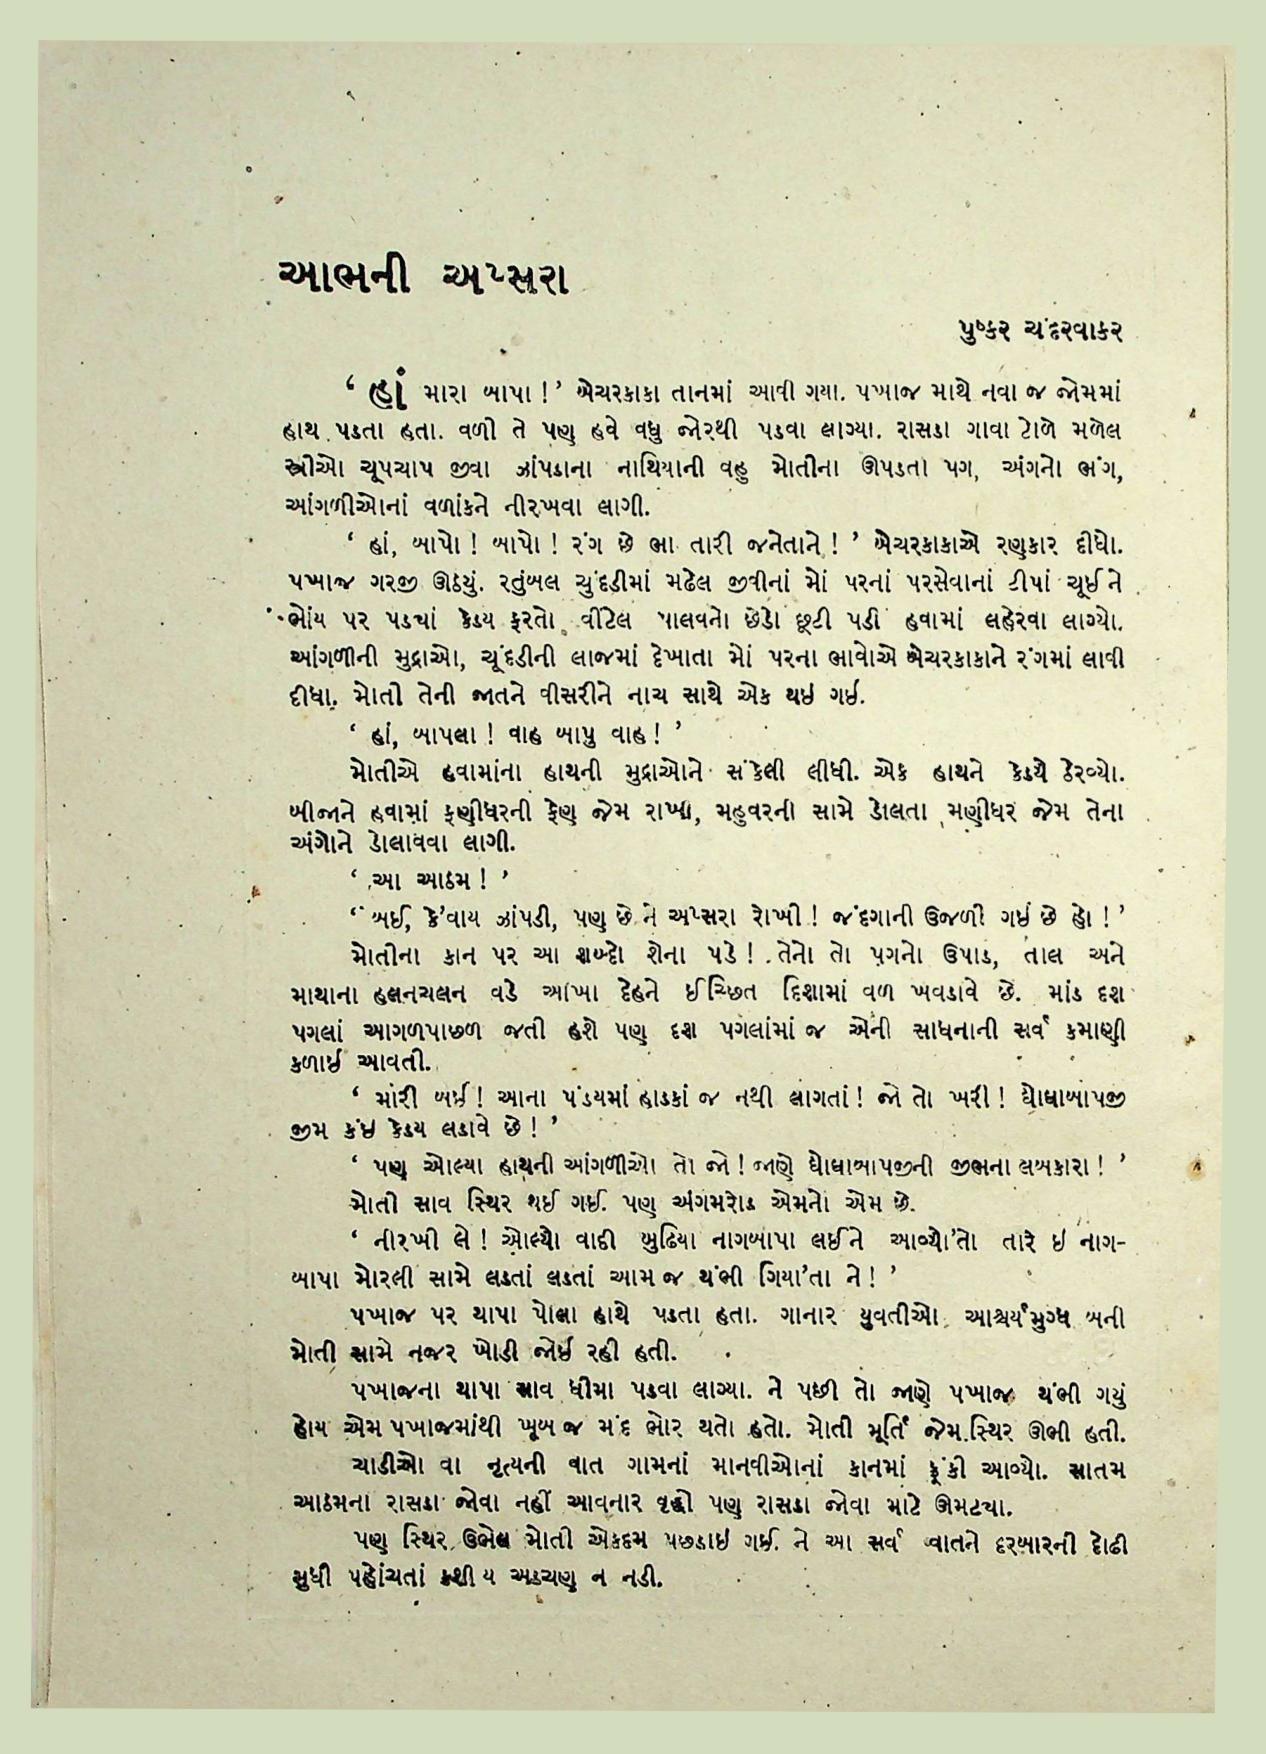 આભની અપ્સરા
પુષ્કર ચંદરવાકર
‘ હાં મારા બાપા ! ’ બેચરકાકા તાનમાં આવી ગયા. પખાજ માથે નવા જ જોમમાં
હાથ પડતા હતા. વળી તે પણ હવે વધુ જોરથી પડવા લાગ્યા. રાસડા ગાવા ટોળે મળેલ
સ્ત્રીઓ ચૂપચાપ જીવા ઝાંપડાના નાથિયાની વહુ મોતીના ઊપડતા પગ, અંગનો ભંગ,
આંગળીઓનાં વળાંકને નીરખવા લાગી.
‘ હાં, બાપો ! બાપો ! રંગ છે ભા તારી જનેતાને ! ’ બેચરકાકાએ રણુકાર દીધો.
પખાજ ગરજી ઊઠયું. રતુંબલ ચુંદડીમાં મઢેલ જીવીનાં મોં પરનાં પરસેવાનાં ટીપાં ચૂઈ ને
ભોંય પર પડ્યાં કેડય ફરતો વીંટેલ પાલવનો છેડો છૂટી પડી હવામાં લહેરવા લાગ્યો.
આંગળીની મુદ્રાઓ, ચૂંદડીની લાજમાં દેખાતા મોં પરના ભાવોએ બેચરકાકાને રંગમાં લાવી
દીધા. મોતી તેની જાતને વીસરીને નાચ સાથે એક થઇ ગઇ.
‘ હાં, બાપલા ! વાહ બાપુ વાહ ! ’
મોતીએ હવામાંના હાથની મુદ્રાઓને સંકેલી લીધી. એક હાથને કેડયે ઠેરવ્યો.
બીજાને હવામાં ફણીધરની ફેણ જેમ રાખી, મહુવરની સામે ડોલતા મણીધર જેમ તેના
અંગોને ડોલાવવા લાગી.
‘ આ આઠમ ! ’
‘ બઈ, કે'વાય ઝાંપડી, પણ છે ને અપ્સરા રોખી ! જંદગાની ઉજળી ગઇ છે હો ! ’
મોતીના કાન પર આ શબ્દો શેના પડે ! તેનો તો પગનો ઉપાડ, તાલ અને
માથાના હલનચલન વડે આખા દેહને ઈચ્છિત દિશામાં વળ ખવડાવે છે. માંડ દશ
પગલાં આગળપાછળ જતી હશે પણ દશ પગલાંમાં જ એની સાધનાની સર્વ કમાણી
કળાઇ આવતી.
‘ મારી બઇ ! આના પંડયમાં હાડકાં જ નથી લાગતાં ! જો તો ખરી ! ઘોઘાબાપજી
જીમ કંઇ કેડય લડાવે છે ! ’
‘ પણ ઓલ્યા હાથની આંગળીઓ તો જો ! જાણે ઘોઘાબાપજીની જીભના લબકારા ! ’
મોતી સાવ સ્થિર થઈ ગઈ. પણ અંગમરોડ એમનો એમ છે.
‘ નીરખી લે ! ઓલ્યો વાદી બુઢિયા નાગબાપા લઈને આવ્યો'તો તારે ઇ નાગ-
બાપા મોરલી સામે લડતાં લડતાં આમ જ થંભી ગિયા'તા ને ! ’
પખાજ પર થાપા પોલા હાથે પડતા હતા. ગાનાર યુવતીઓ આશ્ચર્યમુગ્ધ બની
મોતી સામે નજર ખોડી જોઇ રહી હતી.
પખાજના થાપા સાવ ધીમા પડવા લાગ્યા. ને પછી તો જાણે પખાજ થંભી ગયું
હોય એમ પખાજમાંથી ખૂબ જ મંદ ભોર થતો હતો. મોતી મૂર્તિ જેમ સ્થિર ઊભી હતી.
ચાડીઓ વા નૃત્યની વાત ગામનાં માનવીઓનાં કાનમાં ફૂંકી આવ્યો. સાતમ
આઠમના રાસડા જોવા નહીં આવનાર વૃદ્ધો પણ રાસડા જોવા માટે ઊમટ્યા.
પણ સ્થિર ઉભેલ મોતી એકદમ પછડાઇ ગઈ. ને આ સર્વ વાતને દરબારની દોઢી
સુધી પહોંચતાં કશી ય અડચણ ન નડી.